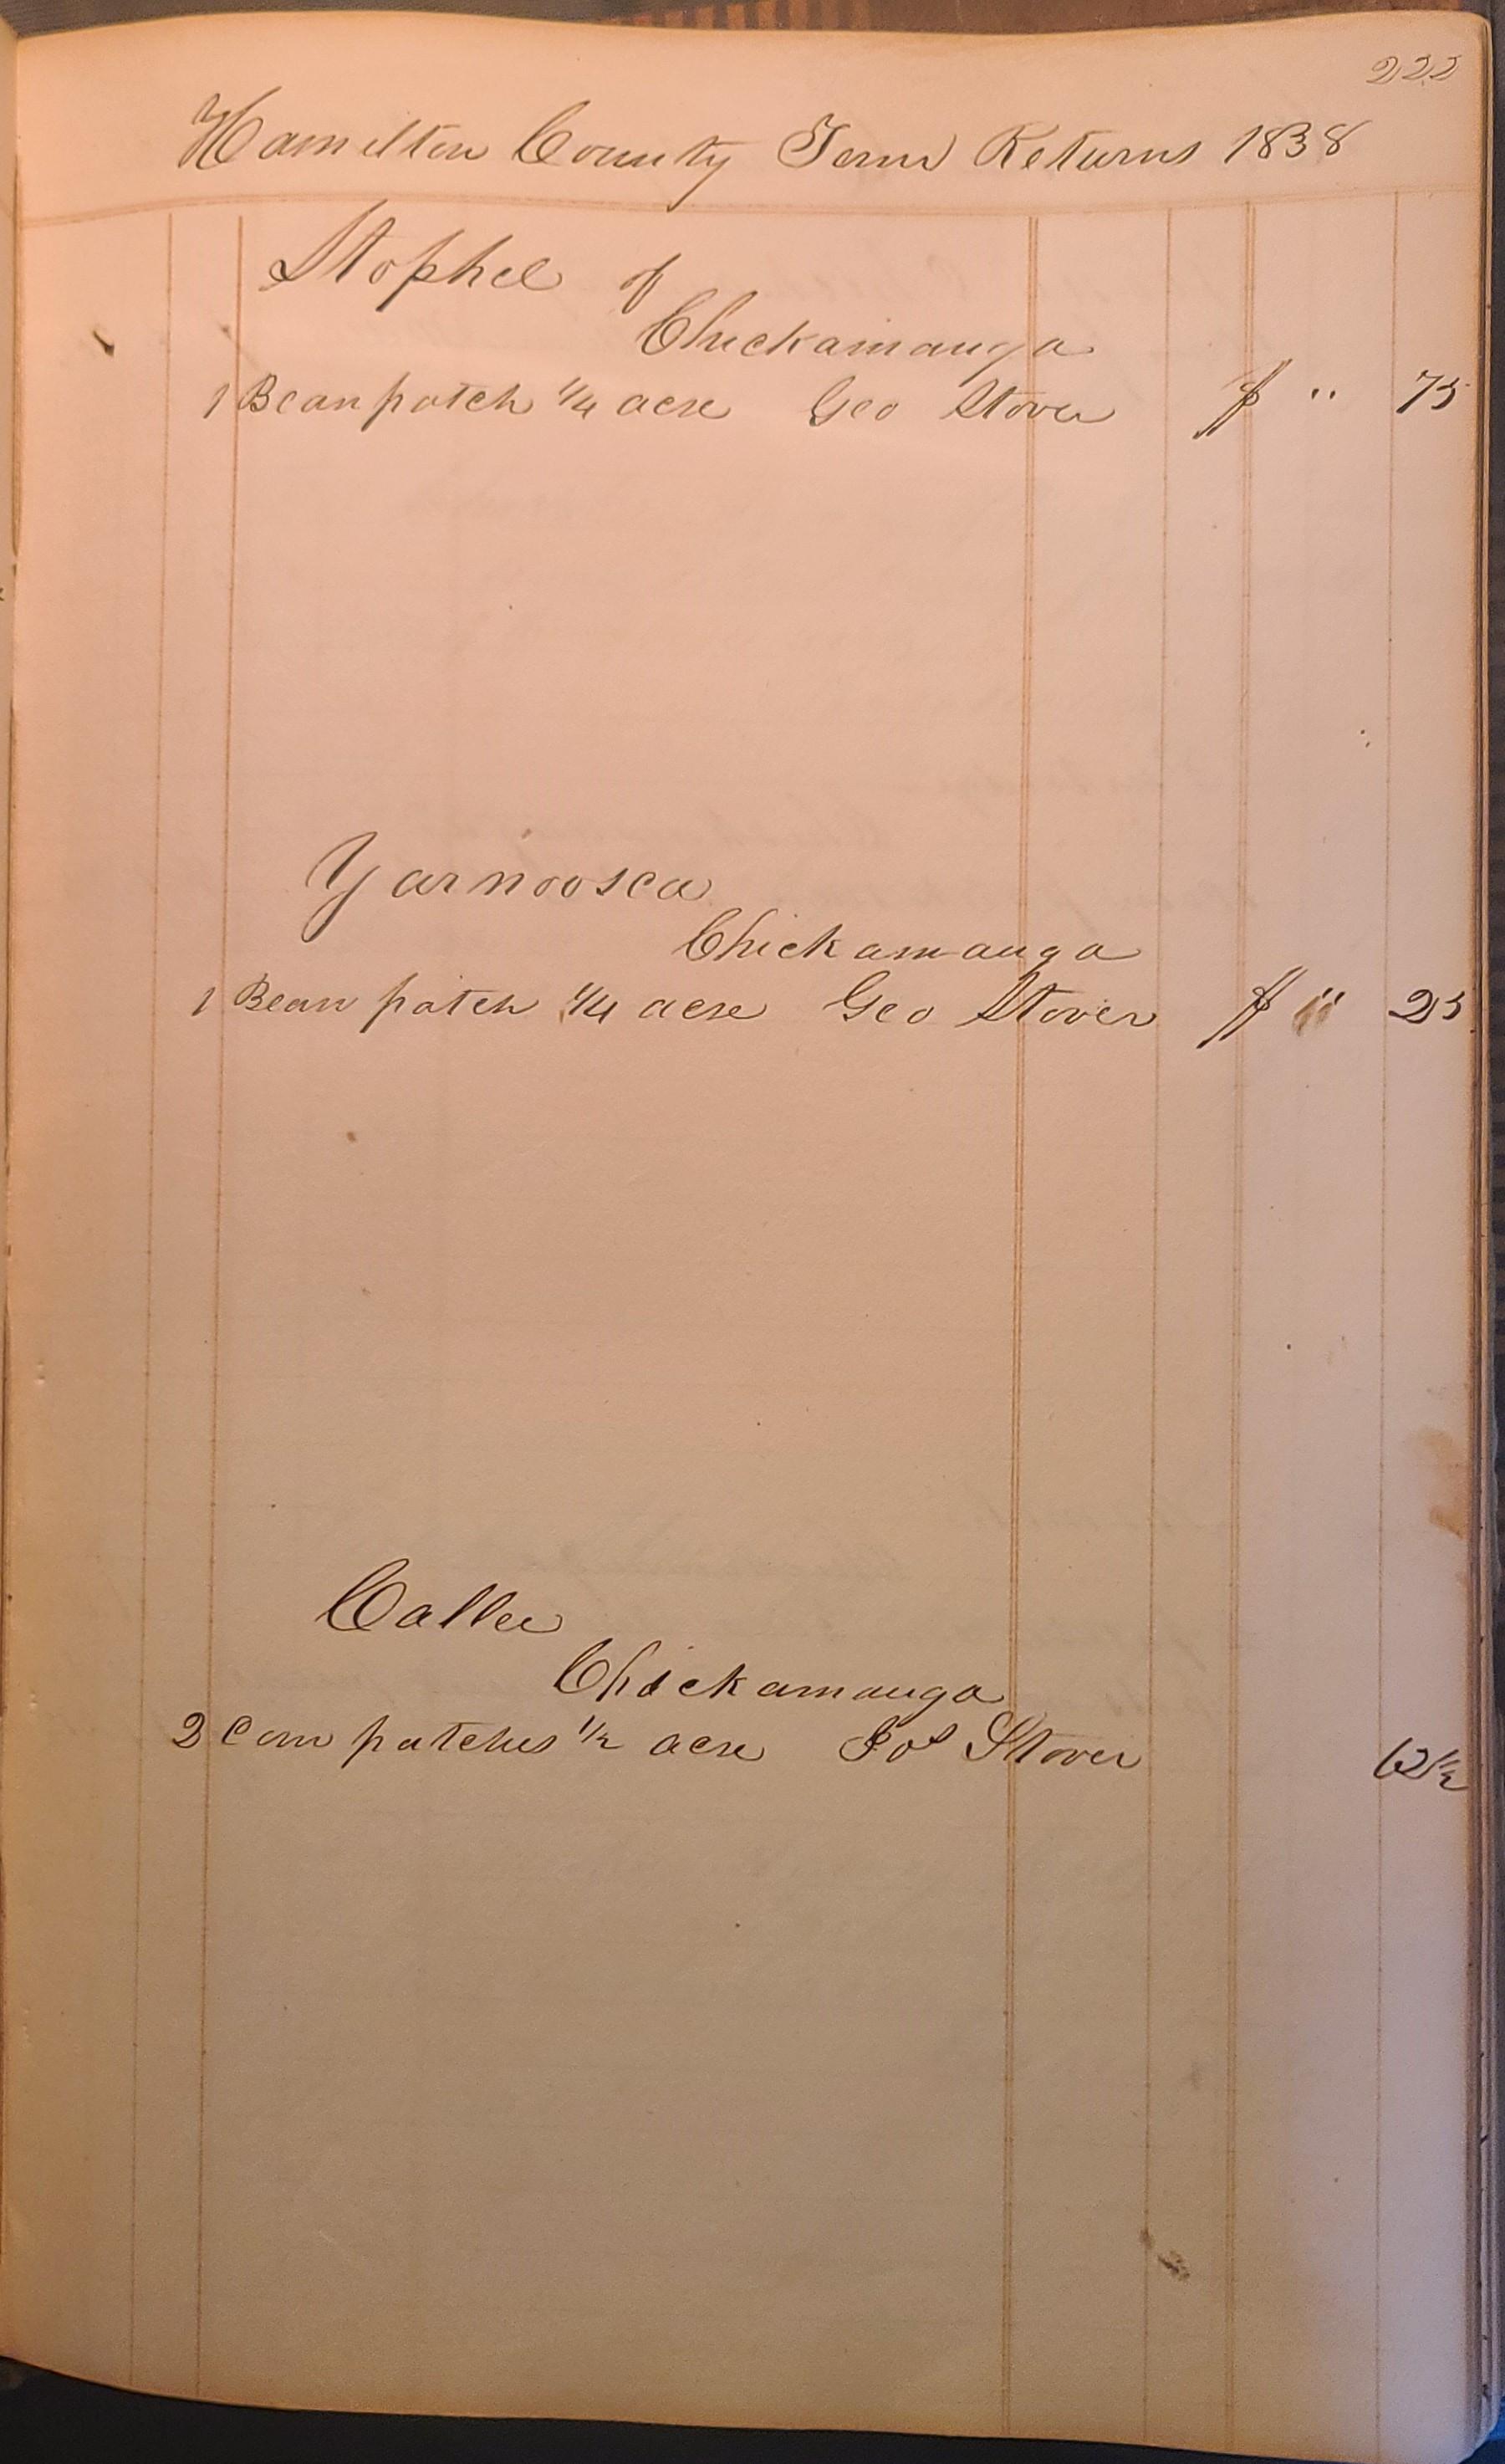 222
Hamilton County Tenn Returns 1838
Stophel of
Chickamauga
1 Bean patch 1/4 acre Geo Stover $ " 75
Yarnoosca
Chickamauga
1 Bean patch 1/4 acre Geo Stover $ " 25
Callee
Chickamauga
2 Corn patches 1/2 acre Jos Stover 62 1/2